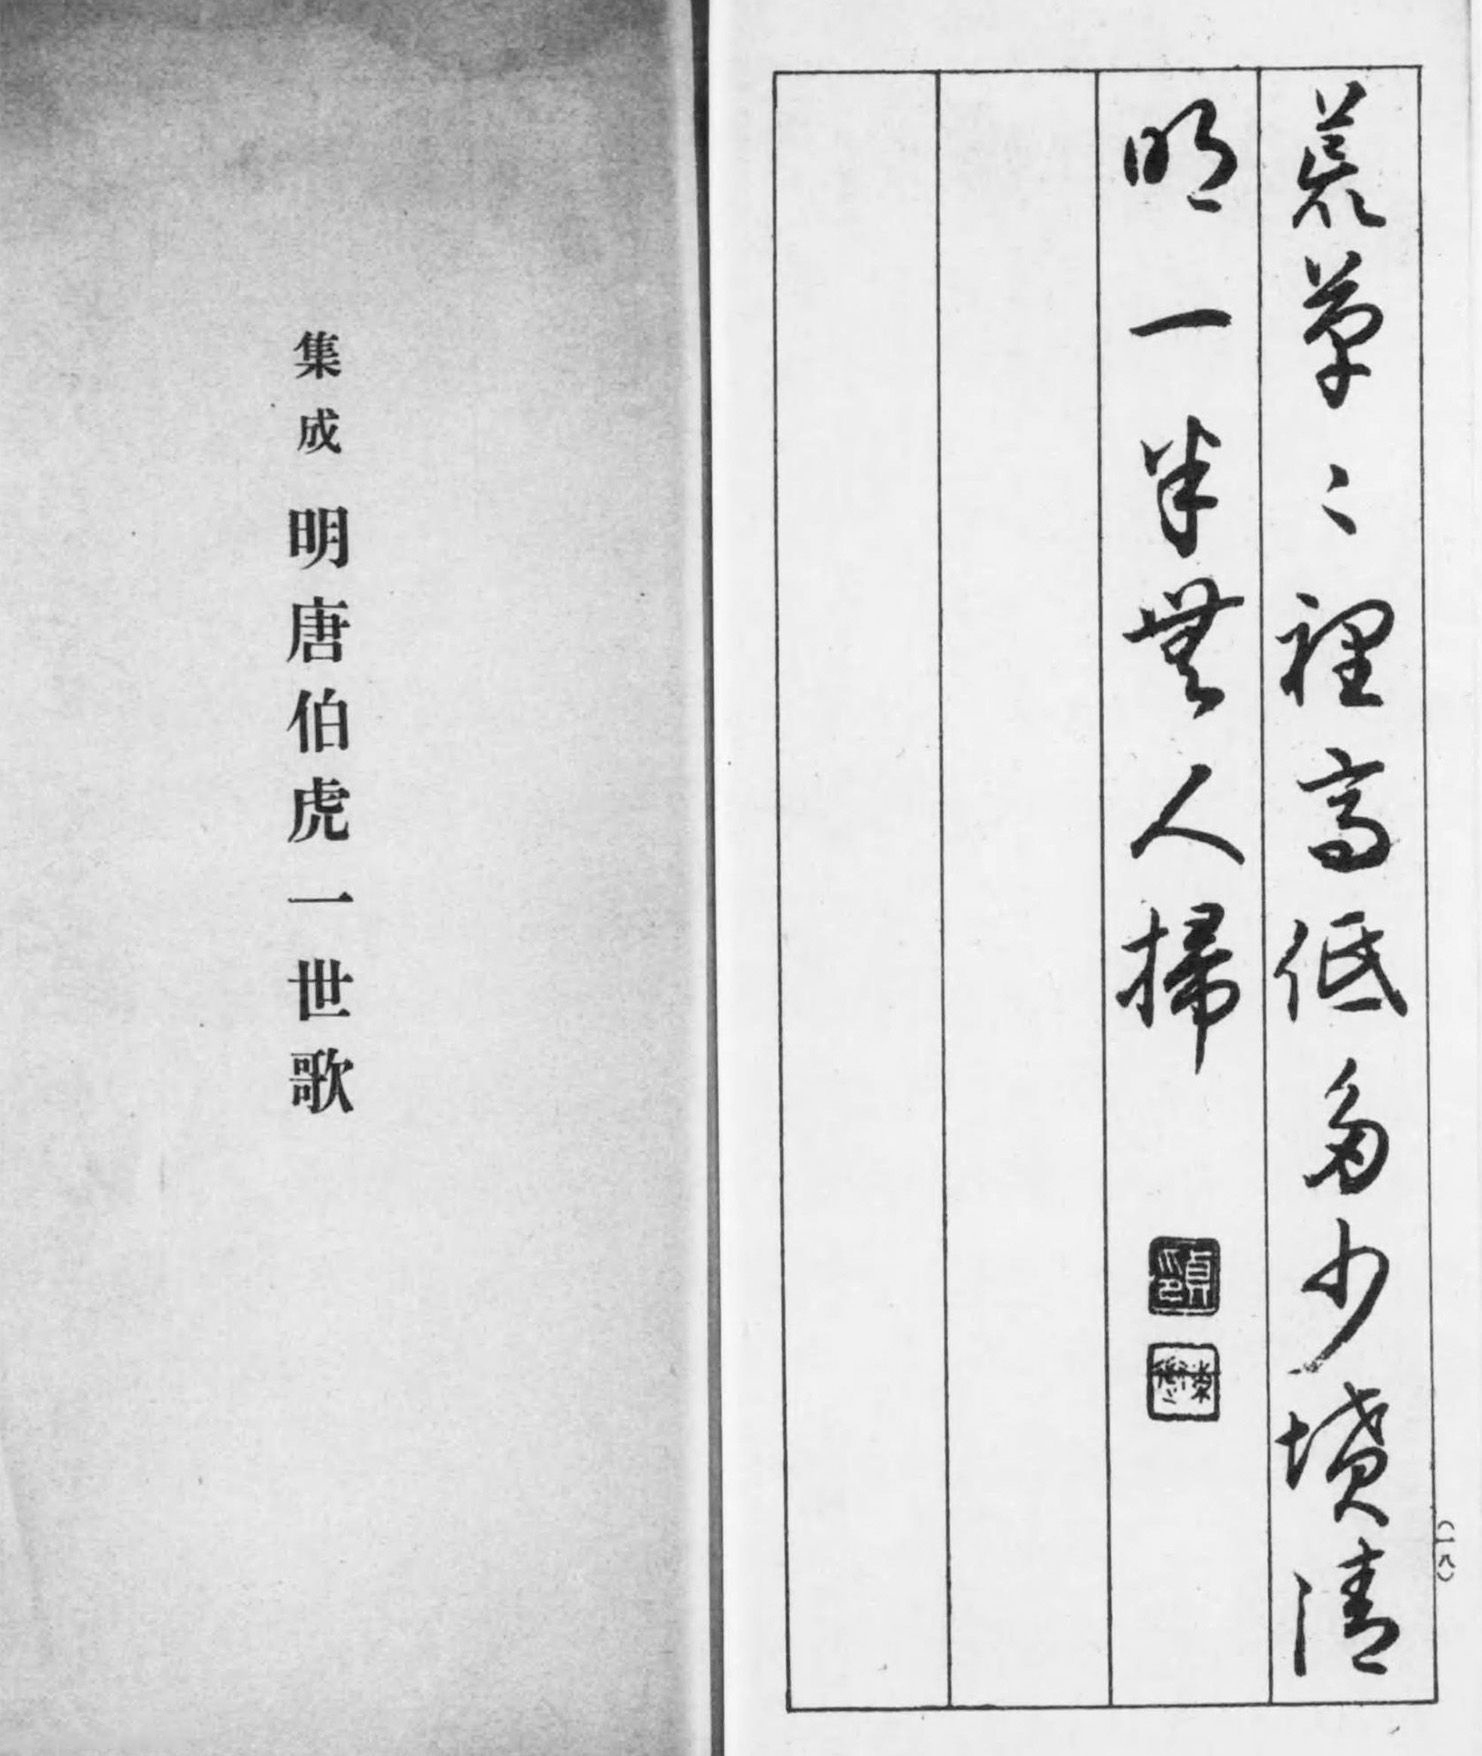 荒草〻裡高低多少墳清
明一半無人掃
(一八)
集成 明唐伯虎一世歌